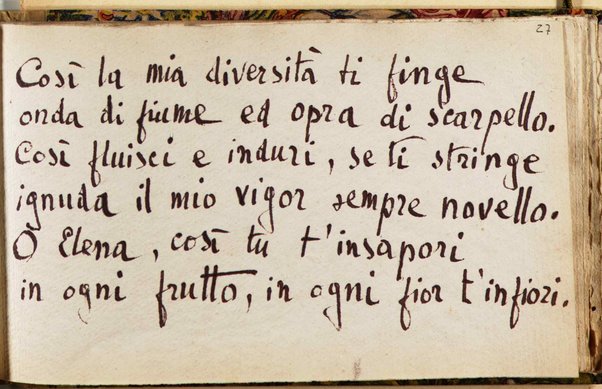 27
Così la mia diversità ti finge
onda di fiume ed opra di scarpello.
Così fluisci e induri, se ti stringe
ignuda il mio vigor sempre novello.
O Elena, così tu t'insapori
in ogni frutto, in ogni fior t'infiori.